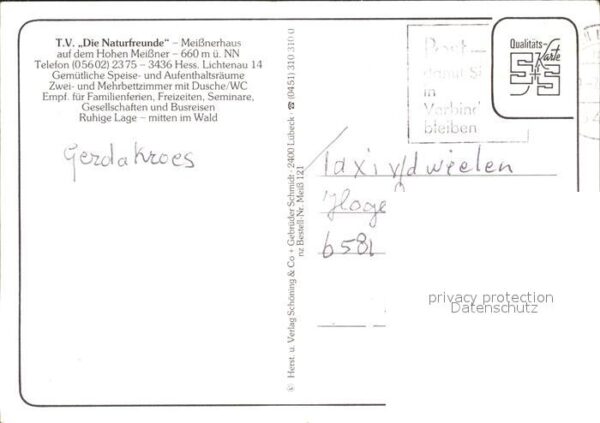 T.V. „Die Naturfreunde“ – Meißnerhaus
auf dem Hohen Meißner – 660 m ü. NN
Telefon (0 56 02) 23 75 – 3436 Hess. Lichtenau 14
Gemütliche Speise- und Aufenthaltsräume
Zwei- und Mehrbettzimmer mit Dusche/WC
Empf. für Familienferien, Freizeiten, Seminare,
Gesellschaften und Busreisen
Ruhige Lage – mitten im Wald
Gerda Kroes
Herst. u. Verlag Schöning & Co + Gebrüder Schmidt · 2400 Lübeck · ☎ (04 51) 310 310
nz Bestell-Nr. Meiß 121
Post
damit Si
in
Verbind
bleiben
Qualitäts-
Karte
S+S
Taxi v/d wielen
Hoge
6581
privacy protection
Datenschutz